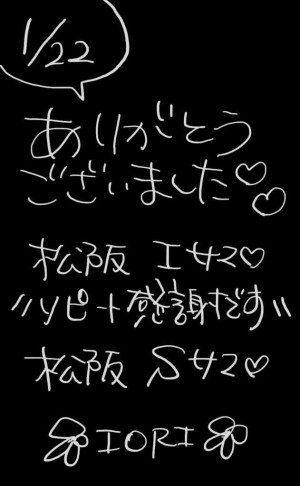 1/22
ありがとう
ございました♡♡
松阪 Iサマ♡
〃リピート感謝です〃
松阪 Sサマ♡
IORI